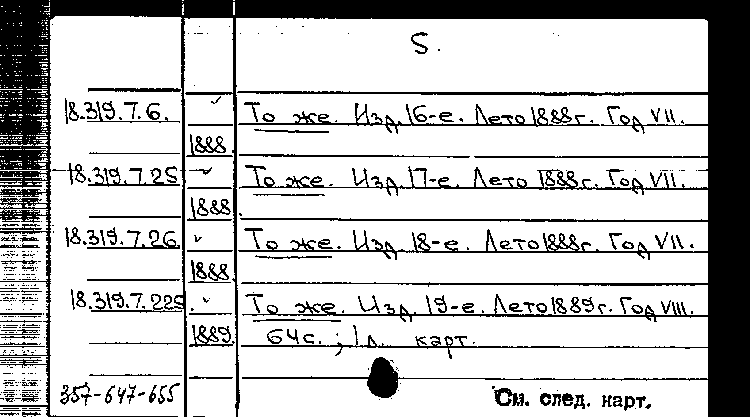 5.
18.319.7.6. То же. Изд. 16-е. Лето 1888 г. Год VII.
1888.
18.319.7.25 То же. Изд. 17-е. Лето 1888 г. Год VII.
1888.
18.319.7.26 То же. Изд. 18-е. Лето 1888 г. Год VII.
1888.
18.319.7.229. То же. Изд. 19-е. Лето 1889 г. Год VIII.
1889. 64 с.; 1 л. карт.
357-647-655 См. след. карт.